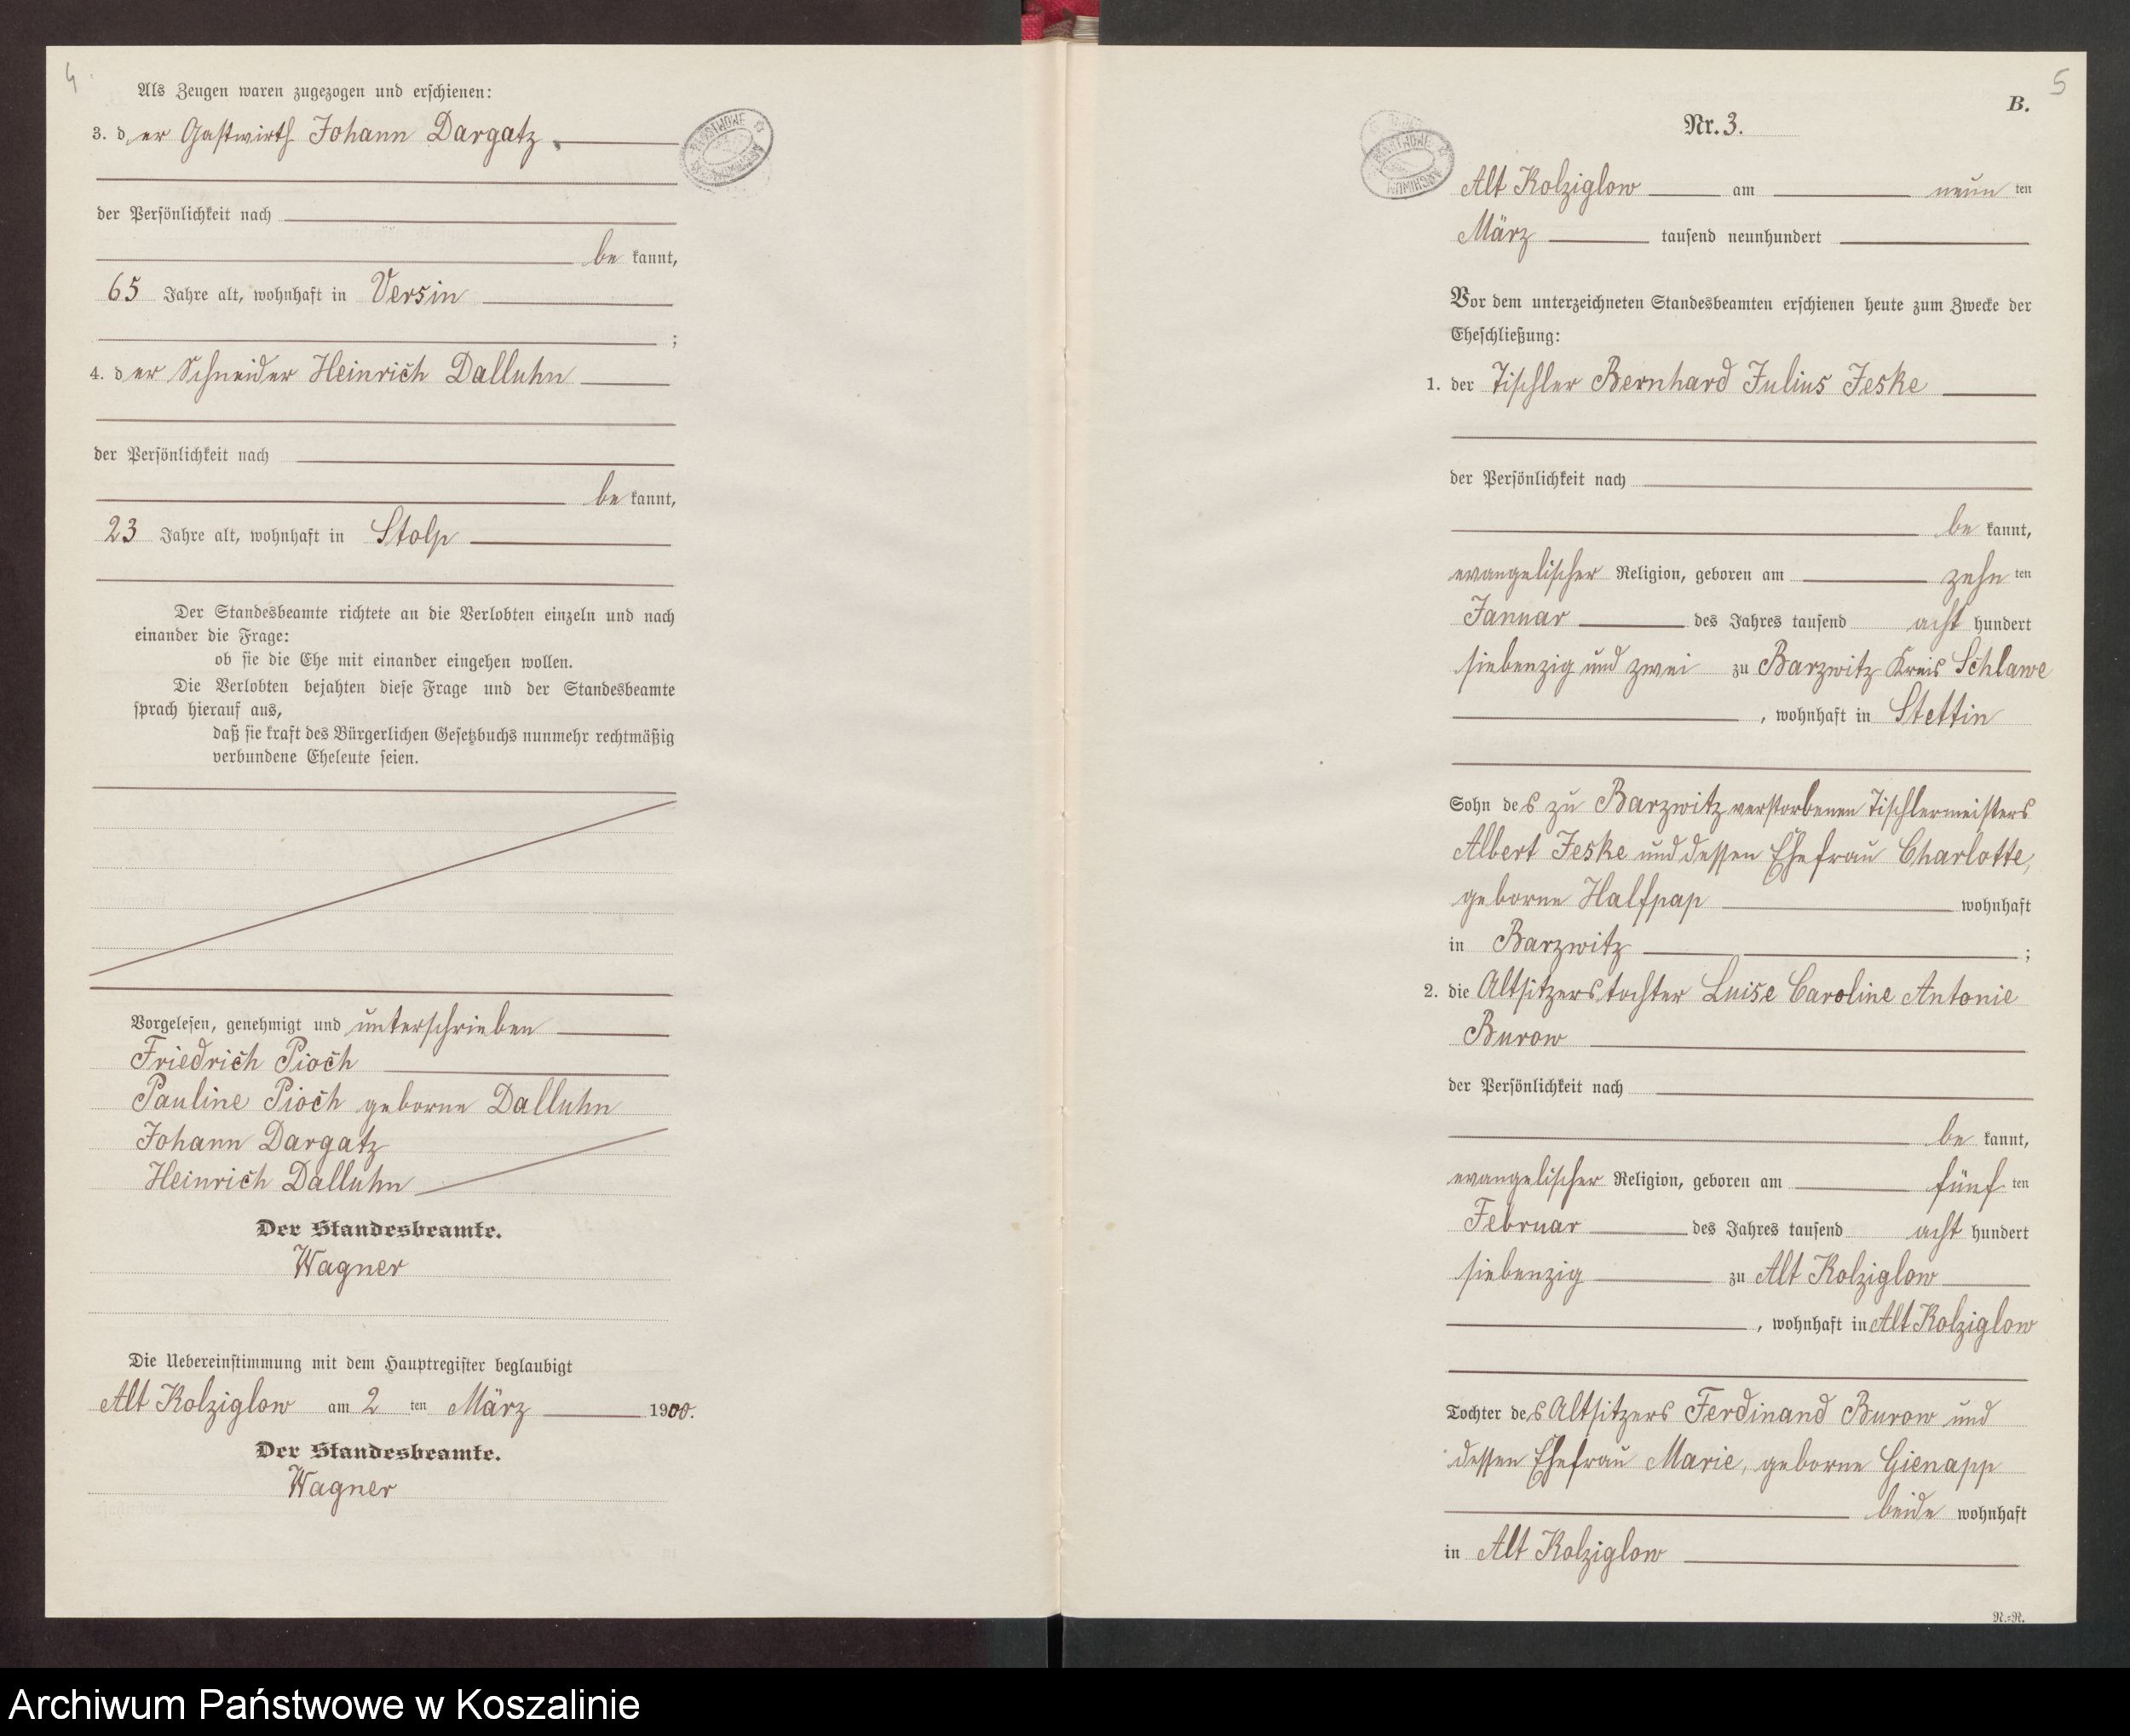 4.
Als Zeugen waren zugezogen und erschienen:
3. der Gastwirth Johann Dargatz
der Persönlichkeit nach
be kannt,
65 Jahre alt, wohnhaft in Versin
;
4. der Schneider Heinrich Dalluhn
der Persönlichkeit nach
be kannt,
23 Jahre alt, wohnhaft in Stolp
Der Standesbeamte richtete an die Verlobten einzeln und nach
einander die Frage:
ob sie die Ehe mit einander eingehen wollen.
Die Verlobten bejahten diese Frage und der Standesbeamte
sprach hierauf aus,
daß sie kraft des Bürgerlichen Gesetzbuchs nunmehr rechtmäßig
verbundene Eheleute seien.
Vorgelesen, genehmigt und unterschrieben
Friedrich Pioch
Pauline Pioch geborne Dalluhn
Johann Dargatz
Heinrich Dalluhn
Der Standesbeamte.
Wagner
Die Uebereinstimmung mit dem Hauptregister beglaubigt
Alt Kolziglow am 2 ten März 1900.
Der Standesbeamte.
Wagner
5
B.
Nr. 3.
Alt Kolziglow am neun ten
März tausend neunhundert
Vor dem unterzeichneten Standesbeamten erschienen heute zum Zwecke der
Eheschließung:
1. der Tischler Bernhard Julius Jeske
der Persönlichkeit nach
be kannt,
evangelischer Religion, geboren am zehn ten
Januar des Jahres tausend acht hundert
siebenzig und zwei zu Barzwitz Kreis Schlawe
, wohnhaft in Stettin
Sohn des zu Barzwitz verstorbenen Tischlermeisters
Albert Jeske und dessen Ehefrau Charlotte,
geborne Halfpap wohnhaft
in Barzwitz ;
2. die Altsitzerstochter Luise Caroline Antonie
Burow
der Persönlichkeit nach
be kannt,
evangelischer Religion, geboren am fünf ten
Februar des Jahres tausend acht hundert
siebenzig zu Alt Kolziglow
, wohnhaft in Alt Kolziglow
Tochter des Altsitzers Ferdinand Burow und
dessen Ehefrau Marie, geborne Gienapp
beide wohnhaft
in Alt Kolziglow
N.=R.
Archiwum Państwowe w Koszalinie